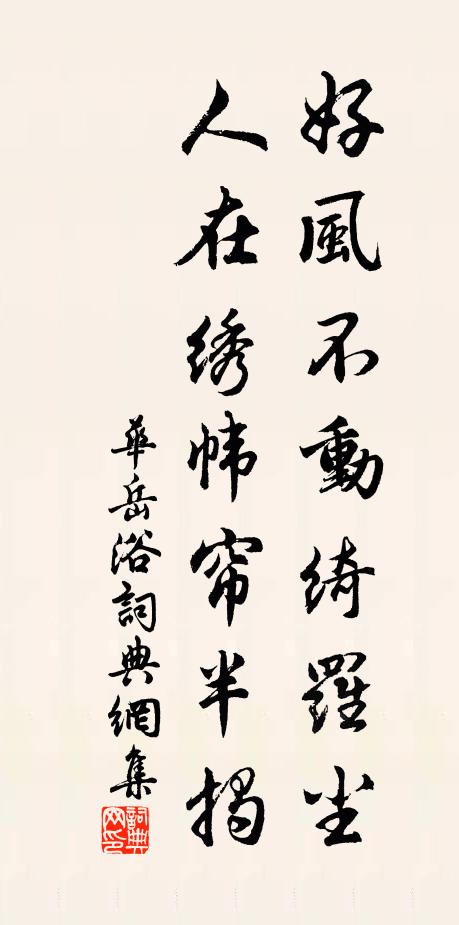 好風不動绮羅尘
人在绣帏帘半揭
華岳浴詞典網集
詞典网印